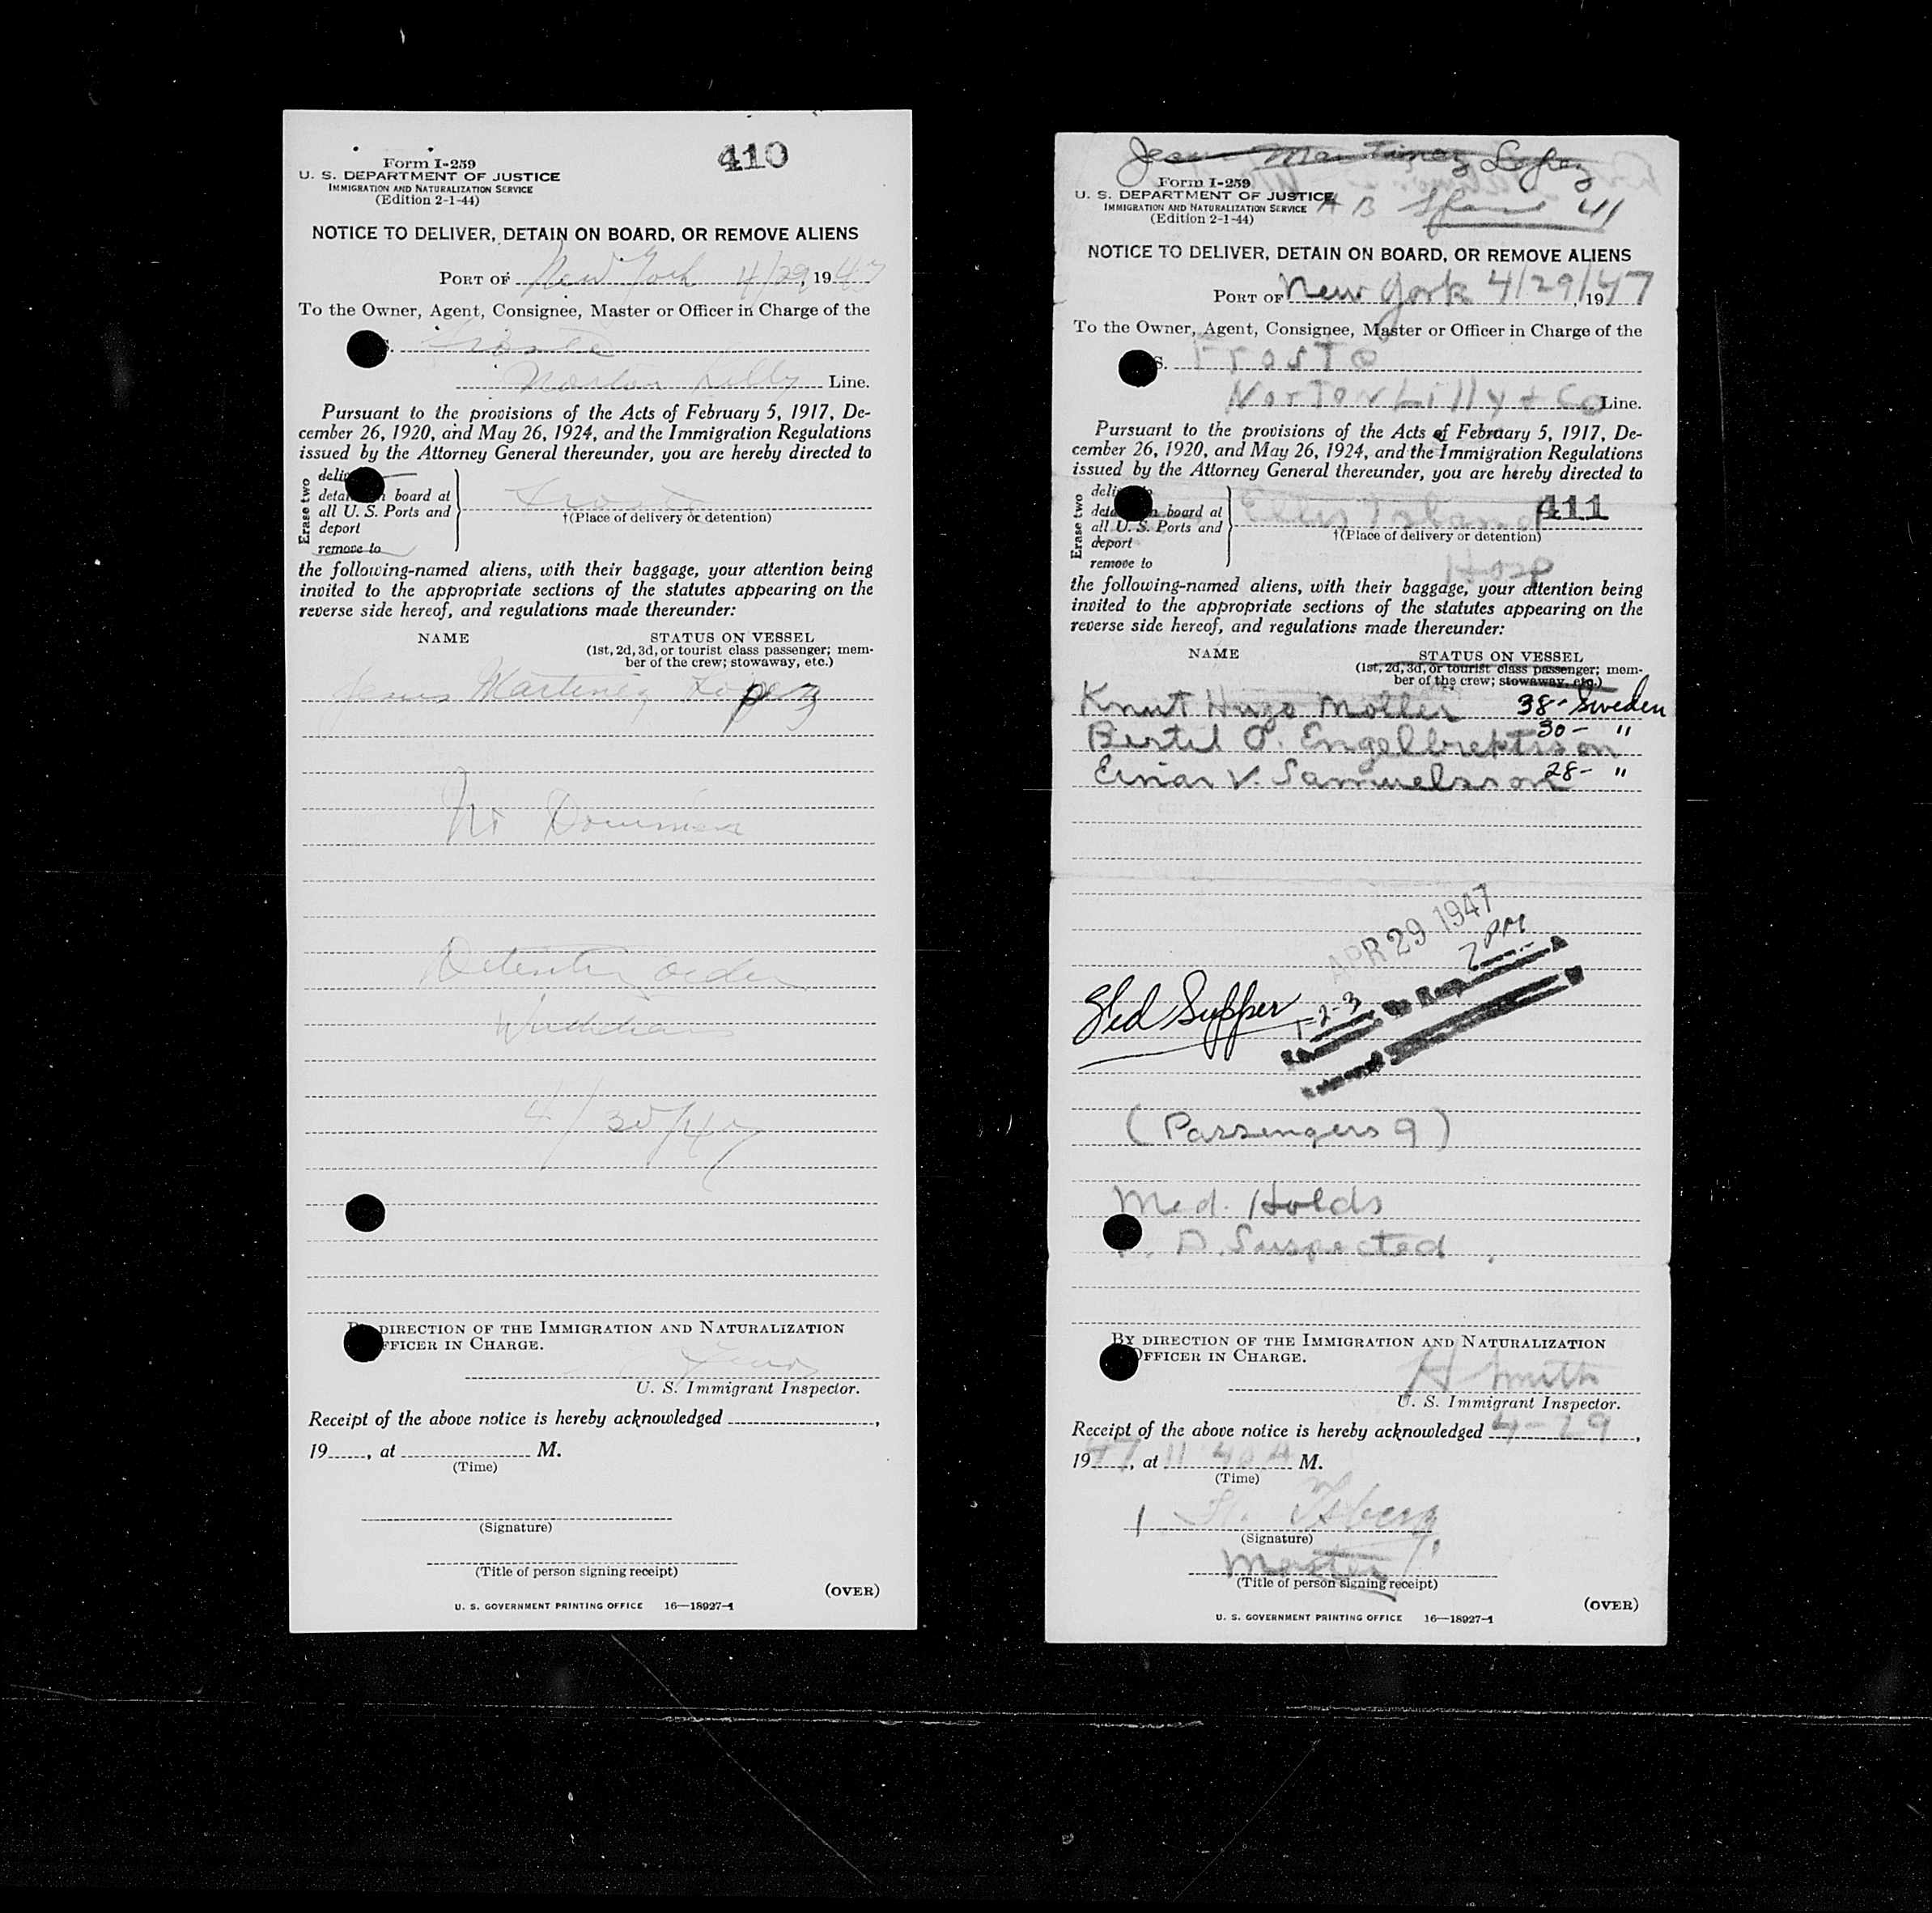 410
Form I-259
U. S. DEPARTMENT OF JUSTICE
IMMIGRATION AND NATURALIZATION SERVICE
(Edition 2-1-44)
NOTICE TO DELIVER, DETAIN ON BOARD, OR REMOVE ALIENS
PORT OF New York 4/29, 1947
To the Owner, Agent, Consignee, Master or Officer in Charge of the
S. Froste
Norton Lilly Line.
Pursuant to the provisions of the Acts of February 5, 1917, De-
cember 26, 1920, and May 26, 1924, and the Immigration Regulations
issued by the Attorney General thereunder, you are hereby directed to
Erase two
deliver
detain on board at
all U. S. Ports and
deport
remove to
Froste
†(Place of delivery or detention)
the following-named aliens, with their baggage, your attention being
invited to the appropriate sections of the statutes appearing on the
reverse side hereof, and regulations made thereunder:
NAME STATUS ON VESSEL
(1st, 2d, 3d, or tourist class passenger; mem-
ber of the crew; stowaway, etc.)
Jesus Martinez Lopez
No Document
Detention order
Withdrawn
4/30/47
BY DIRECTION OF THE IMMIGRATION AND NATURALIZATION
OFFICER IN CHARGE.
U. S. Immigrant Inspector.
Receipt of the above notice is hereby acknowledged ,
19 , at M.
(Time)
(Signature)
(Title of person signing receipt)
(OVER)
U. S. GOVERNMENT PRINTING OFFICE 16—18927-1
Jesus Martinez Lopez
Form I-259
U. S. DEPARTMENT OF JUSTICE
IMMIGRATION AND NATURALIZATION SERVICE
A B Spain 41
(Edition 2-1-44)
NOTICE TO DELIVER, DETAIN ON BOARD, OR REMOVE ALIENS
PORT OF New York 4/29/1947
To the Owner, Agent, Consignee, Master or Officer in Charge of the
S. Froste
Norton Lilly + Co Line.
Pursuant to the provisions of the Acts of February 5, 1917, De-
cember 26, 1920, and May 26, 1924, and the Immigration Regulations
issued by the Attorney General thereunder, you are hereby directed to
Erase two
deliver to
detain on board at
all U. S. Ports and
deport
remove to
Ellis Island 411
†(Place of delivery or detention)
Hosp
the following-named aliens, with their baggage, your attention being
invited to the appropriate sections of the statutes appearing on the
reverse side hereof, and regulations made thereunder:
NAME STATUS ON VESSEL
(1st, 2d, 3d, or tourist class passenger; mem-
ber of the crew; stowaway, etc.)
Knut Hugo Moller 38- Sweden
Bertil O. Engelbrektsson 30- "
Einar V. Samuelsson 28- "
APR 29 1947
2 PM
Supper
1-2-3
(Passengers 9)
Med. Holds
D. Suspected
BY DIRECTION OF THE IMMIGRATION AND NATURALIZATION
OFFICER IN CHARGE.
H Smith
U. S. Immigrant Inspector.
Receipt of the above notice is hereby acknowledged 4-29,
1947, at 11 40 A M.
(Time)
H. Isberg
(Signature)
Master
(Title of person signing receipt)
(OVER)
U. S. GOVERNMENT PRINTING OFFICE 16—18927-1